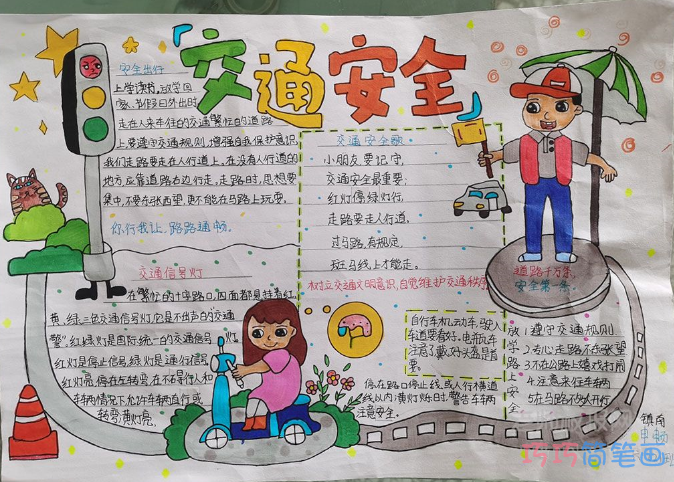 「交通安全」
安全出行
上学读书,放学回
家、节假日外出时
走在人来车往的交通繁忙的道路
上要遵守交通规则,增强自我保护意识,
我们走路要走在人行道上,在没有人行道的
地方应靠道路右边行走,走路时,思想要
集中,不要东张西望,更不能在马路上玩耍。
你行我让,路路通畅。
交通安全歌
小朋友要记守,
交通安全最重要,
红灯停绿灯行,
走路要走人行道,
过马路,有规定,
斑马线上才能走。
树立交通文明意识,自觉维护交通秩序
交通信号灯
在繁忙的十字路口,四面都悬挂着红、
黄、绿、三色交通信号灯,它是不出声的"交通
警"。红绿灯是国际统一的交通信号灯。
红灯是停止信号,绿灯是通行信号
红灯亮,停在左转弯,在不碍行人和
车辆情况下,允许车辆直行或
转弯黄灯亮。
自行车机动车,驶入
车道要有好,电瓶车
注意了戴好头盔是首
要。
停在路口停止线或人行横道
线以内:黄灯烁时,警告车辆
注意安全。
道路千万条
安全第一条
放学路上安全
1遵守交通规则
2专心走路不东张望
3不在公路上嬉戏打闹
4注意来往车辆
5在马路不吹开行
镇南
巧巧简笔画